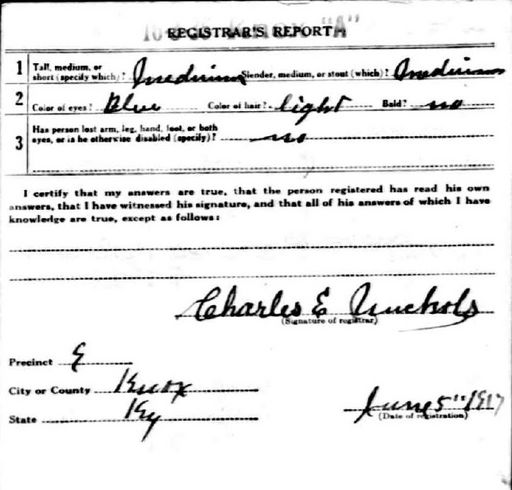 REGISTRAR'S REPORT "A"
1 Tall, medium, or short (specify which)? Medium Slender, medium, or stout (which)? Medium
2 Color of eyes? Blue Color of hair? light Bald? no
3 Has person lost arm, leg, hand, foot, or both eyes, or is he otherwise disabled (specify)? no
I certify that my answers are true, that the person registered has read his own
answers, that I have witnessed his signature, and that all of his answers of which I have
knowledge are true, except as follows:
Charles E Nuchols
(Signature of registrar)
Precinct E
City or County Knox
State Ky
June 5" 1917
(Date of registration)